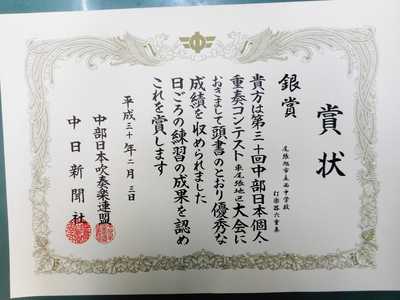 賞状
尾張旭市立西中学校
打楽器六重奏
銀賞
貴方は第三十回中部日本個人
重奏コンテスト東尾張地区大会に
おきまして頭書のとおり優秀な
成績を収められました
日ごろの練習の成果を認め
これを賞します
平成三十年二月三日
中部日本吹奏楽連盟
中日新聞社